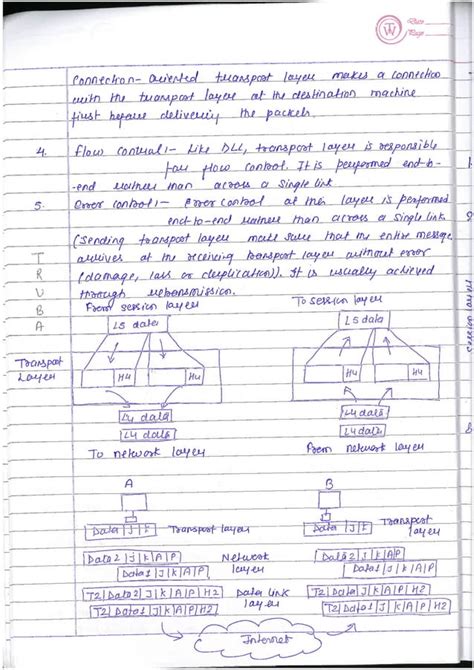 TW
Date
Page
Connection-oriented transport layer makes a connection
with the transport layer at the destination machine
first before delivering the packets.
4. Flow control:- Like DLL, transport layer is responsible
for flow control. It is performed end-to-
-end rather than across a single link.
5. Error control:- Error control at this layer is performed
end-to-end rather than across a single link
(Sending transport layer make sure that the entire message
arrives at the receiving transport layer without error
(damage, loss or duplication)). It is usually achieved
through retransmission.
T
R
U
B
A
From session layer
To session layer
L5 data
L5 data
Transport
Layer
H4
H4
H4
H4
L4 data
L4 data
L4 data
L4 data
To network layer
From network layer
A
B
Data|J|K
Transport layer
Data|J|K
Transport
layer
Data2|J|K|A|P
Network
layer
Data2|J|K|A|P
Data1|J|K|A|P
Data1|J|K|A|P
T2|Data2|J|K|A|P|H2
Data link
layer
T2|Data2|J|K|A|P|H2
T2|Data1|J|K|A|P|H2
T2|Data1|J|K|A|P|H2
Internet